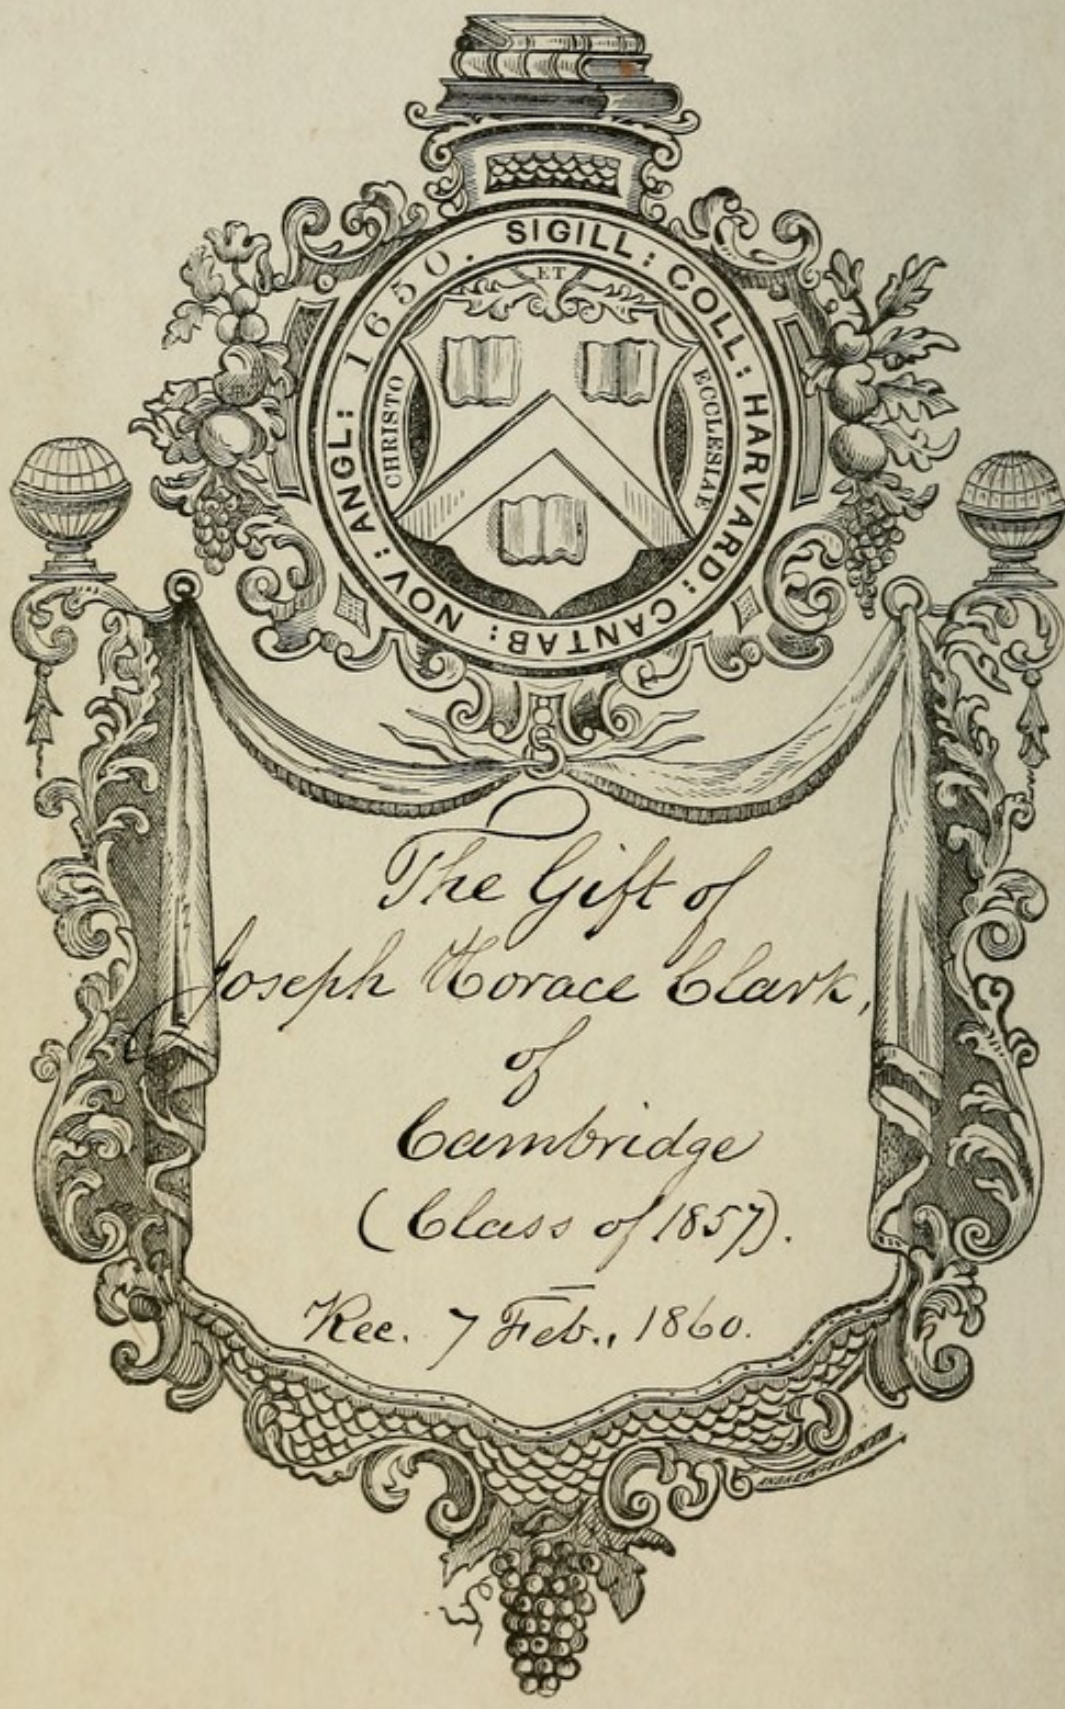 SIGILL: COLL: HARVARD: CANTAB: NOV: ANGL: 1650.
CHRISTO
ET
ECCLESIAE
The Gift of
Joseph Horace Clark,
of
Cambridge
(Class of 1857).
Rec. 7 Feb., 1860.